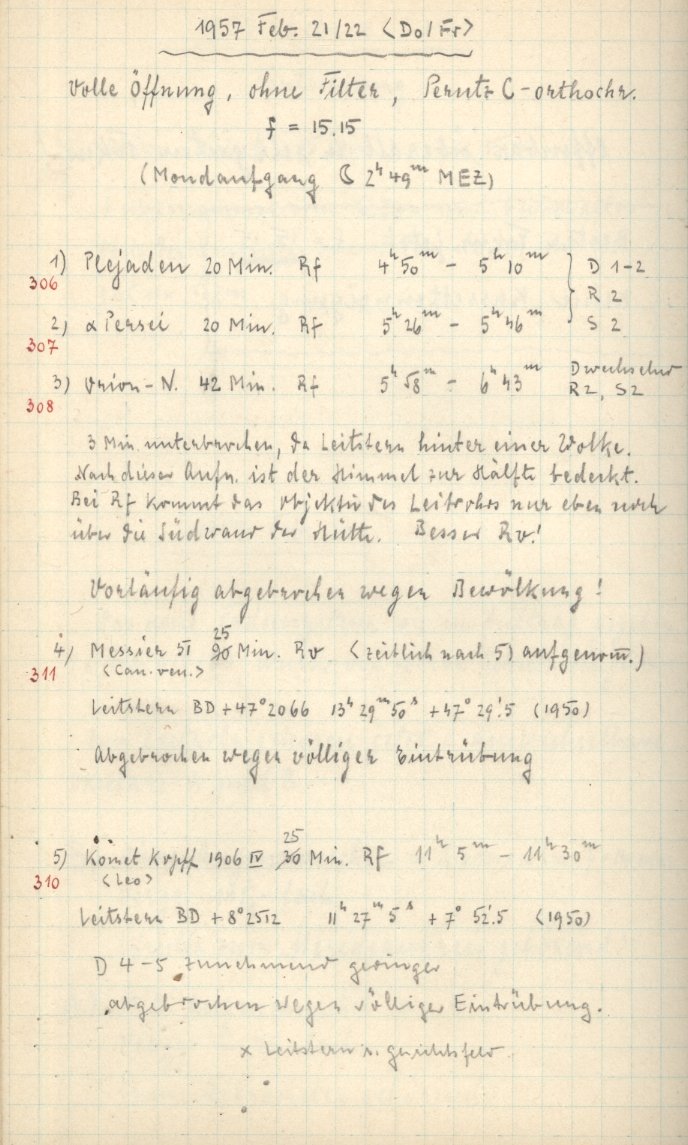 1957 Feb. 21/22 <Do/Fr>
Volle Öffnung, ohne Filter, Perutz C-orthochr.
f = 15,15
(Mondaufgang ☾ 2ʰ 49ᵐ MEZ)
1) Plejaden 20 Min. Rf 4ʰ50ᵐ – 5ʰ10ᵐ } D 1-2
306 R 2
2) α Persei 20 Min. Rf 5ʰ26ᵐ – 5ʰ46ᵐ S 2
307
3) Orion-N. 42 Min. Rf 5ʰ58ᵐ – 6ʰ43ᵐ D wechselnd
308 R2, S2
3 Min unterbrochen, da Leitstern hinter einer Wolke.
Nach dieser Aufn. ist der Himmel zur Hälfte bedeckt.
Bei Rf kommt das Objektiv des Leitrohrs nur eben noch
über die Südwand der Hütte. Besser Rv!
Vorläufig abgebrochen wegen Bewölkung!
25
4) Messier 51 90 Min. Rv <zeitlich nach 5) aufgenom̅.)
311 <Can. ven.>
Leitstern BD +47°2066 13ʰ 29ᵐ 50ˢ +47° 29'.5 (1950)
Abgebrochen wegen völliger Eintrübung
25
5) Komet Kopff 1906 IV 30 Min. Rf 11ʰ 5ᵐ – 11ʰ 30ᵐ
310 <Leo>
Leitstern BD +8°2512 11ʰ 27ᵐ 5ˢ + 7° 52'.5 (1950)
D 4-5 zunehmend geringer
abgebrochen wegen völliger Eintrübung.
x Leitstern Gesichtsfeld